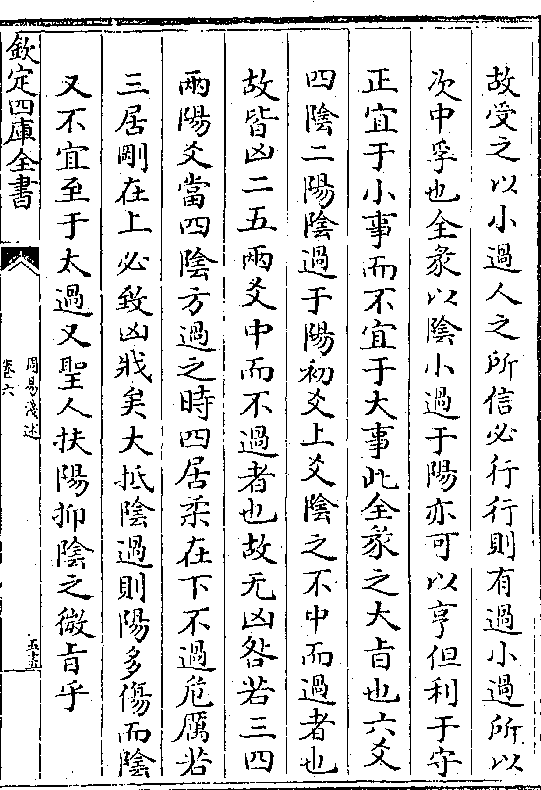 故受之以小過人之所信必行行則有過小過所以
次中孚也全彖以隂小過于陽亦可以亨但利于守
正宜于小事而不宜于大事此全彖之大㫖也六爻
四隂二陽隂過于陽初爻上爻隂之不中而過者也
故皆凶二五兩爻中而不過者也故无凶咎若三四
兩陽爻當四隂方過之時四居柔在下不過危厲若
三居剛在上必致凶戕矣大抵隂過則陽多傷而隂
又不宜至于太過又聖人扶陽抑隂之微㫖乎
欽定四庫全書
周易淺述
卷六
五十五